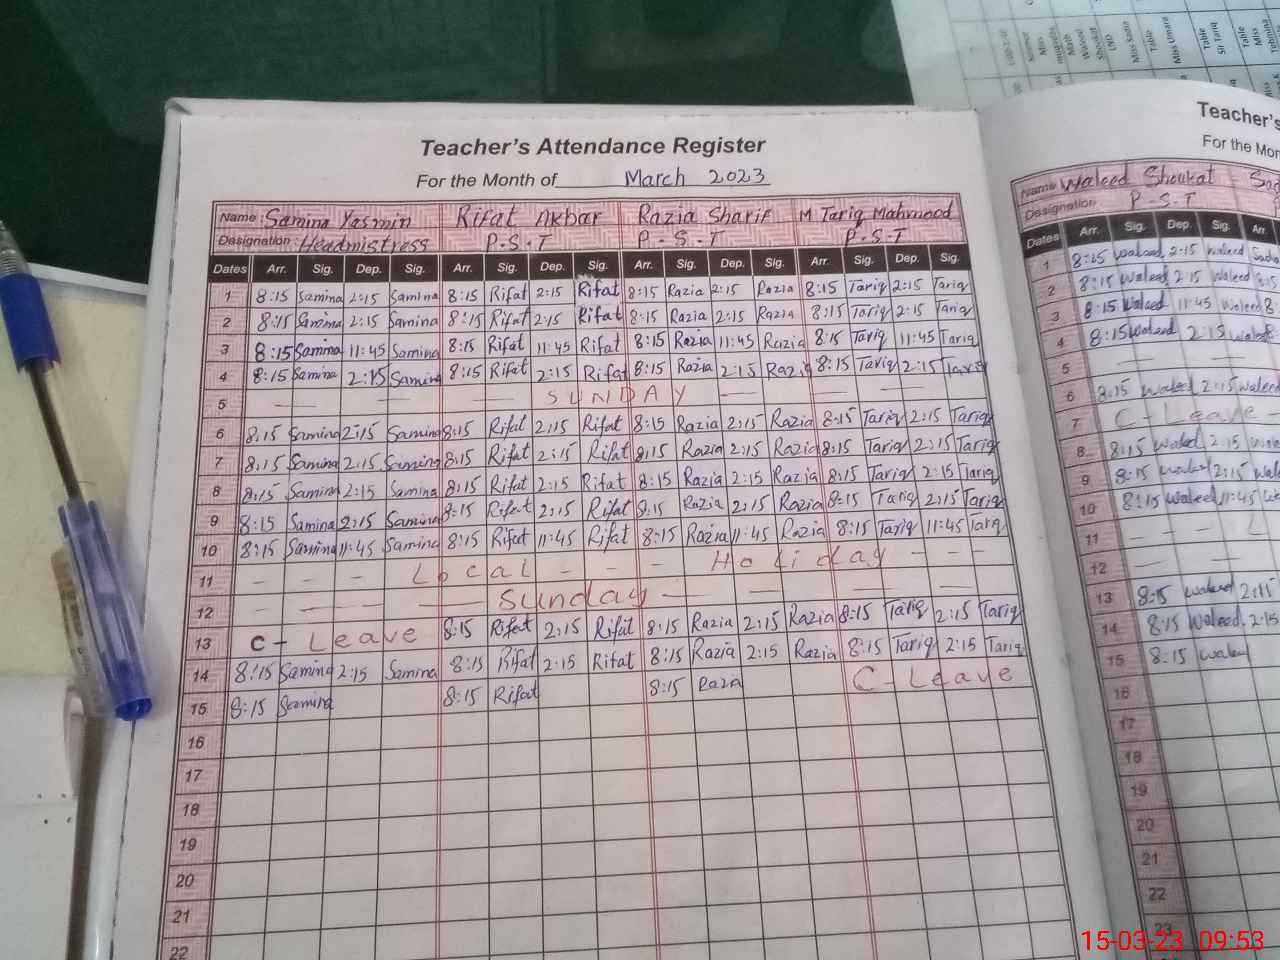 Teacher's Attendance Register
For the Month of March 2023
Name : Samina Yasmin Rifat Akbar Razia Sharif M Tariq Mahmood
Designation : Headmistress P.S.T P.S.T P.S.T
Dates Arr. Sig. Dep. Sig. Arr. Sig. Dep. Sig. Arr. Sig. Dep. Sig. Arr. Sig. Dep. Sig.
1 8:15 Samina 2:15 Samina 8:15 Rifat 2:15 Rifat 8:15 Razia 2:15 Razia 8:15 Tariq 2:15 Tariq
2 8:15 Samina 2:15 Samina 8:15 Rifat 2:15 Rifat 8:15 Razia 2:15 Razia 8:15 Tariq 2:15 Tariq
3 8:15 Samina 11:45 Samina 8:15 Rifat 11:45 Rifat 8:15 Razia 11:45 Razia 8:15 Tariq 11:45 Tariq
4 8:15 Samina 2:15 Samina 8:15 Rifat 2:15 Rifat 8:15 Razia 2:15 Razia 8:15 Tariq 2:15 Tariq
5 SUNDAY
6 8:15 Samina 2:15 Samina 8:15 Rifat 2:15 Rifat 8:15 Razia 2:15 Razia 8:15 Tariq 2:15 Tariq
7 8:15 Samina 2:15 Samina 8:15 Rifat 2:15 Rifat 8:15 Razia 2:15 Razia 8:15 Tariq 2:15 Tariq
8 8:15 Samina 2:15 Samina 8:15 Rifat 2:15 Rifat 8:15 Razia 2:15 Razia 8:15 Tariq 2:15 Tariq
9 8:15 Samina 2:15 Samina 8:15 Rifat 2:15 Rifat 8:15 Razia 2:15 Razia 8:15 Tariq 2:15 Tariq
10 8:15 Samina 11:45 Samina 8:15 Rifat 11:45 Rifat 8:15 Razia 11:45 Razia 8:15 Tariq 11:45 Tariq
11 Local Holiday
12 Sunday
13 C-Leave 8:15 Rifat 2:15 Rifat 8:15 Razia 2:15 Razia 8:15 Tariq 2:15 Tariq
14 8:15 Samina 2:15 Samina 8:15 Rifat 2:15 Rifat 8:15 Razia 2:15 Razia 8:15 Tariq 2:15 Tariq
15 8:15 Samina 8:15 Rifat 8:15 Razia C-Leave
16
17
18
19
20
21
22
Teacher's
For the Mon
Name Waleed Shoukat
Designation P.S.T
Dates Arr. Sig. Dep. Sig. Arr.
1 8:15 Waleed 2:15 Waleed
2 8:15 Waleed 2:15 Waleed 8:15
3 8:15 Waleed 11:45 Waleed
4 8:15 Waleed 2:15 Waleed
5
6 8:15 Waleed 2:15 Waleed
7 C-Leave
8 8:15 Waleed 2:15
9 8:15 Waleed 2:15
10 8:15 Waleed 11:45
11
12
13 8:15 Waleed 2:15
14 8:15 Waleed 2:15
15 8:15 Waleed
16
17
18
19
20
21
22
23
Miss
Math
Waleed
Shoukat
Miss Sadia
Table
Miss Umara
Table
Sir Tariq
Table
Miss
15-03-23 09:53